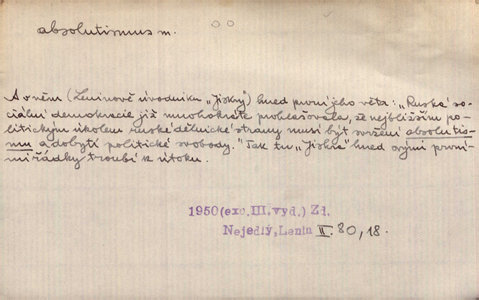 absolutismus m.
A v něm (Leninově úvodníku „Jiskry") hned první jeho věta: „Ruská so-
ciální demokracie již mnohokráte prohlašovala, že nejbližším po-
litickým úkolem ruské dělnické strany musí být svržení absolutis-
mu a dobytí politické svobody." Tak tu „Jiskra" hned svými první-
mi řádky troubí k útoku.
1950 (exc. III. vyd.) Zd.
Nejedlý, Lenin II. 80, 18.